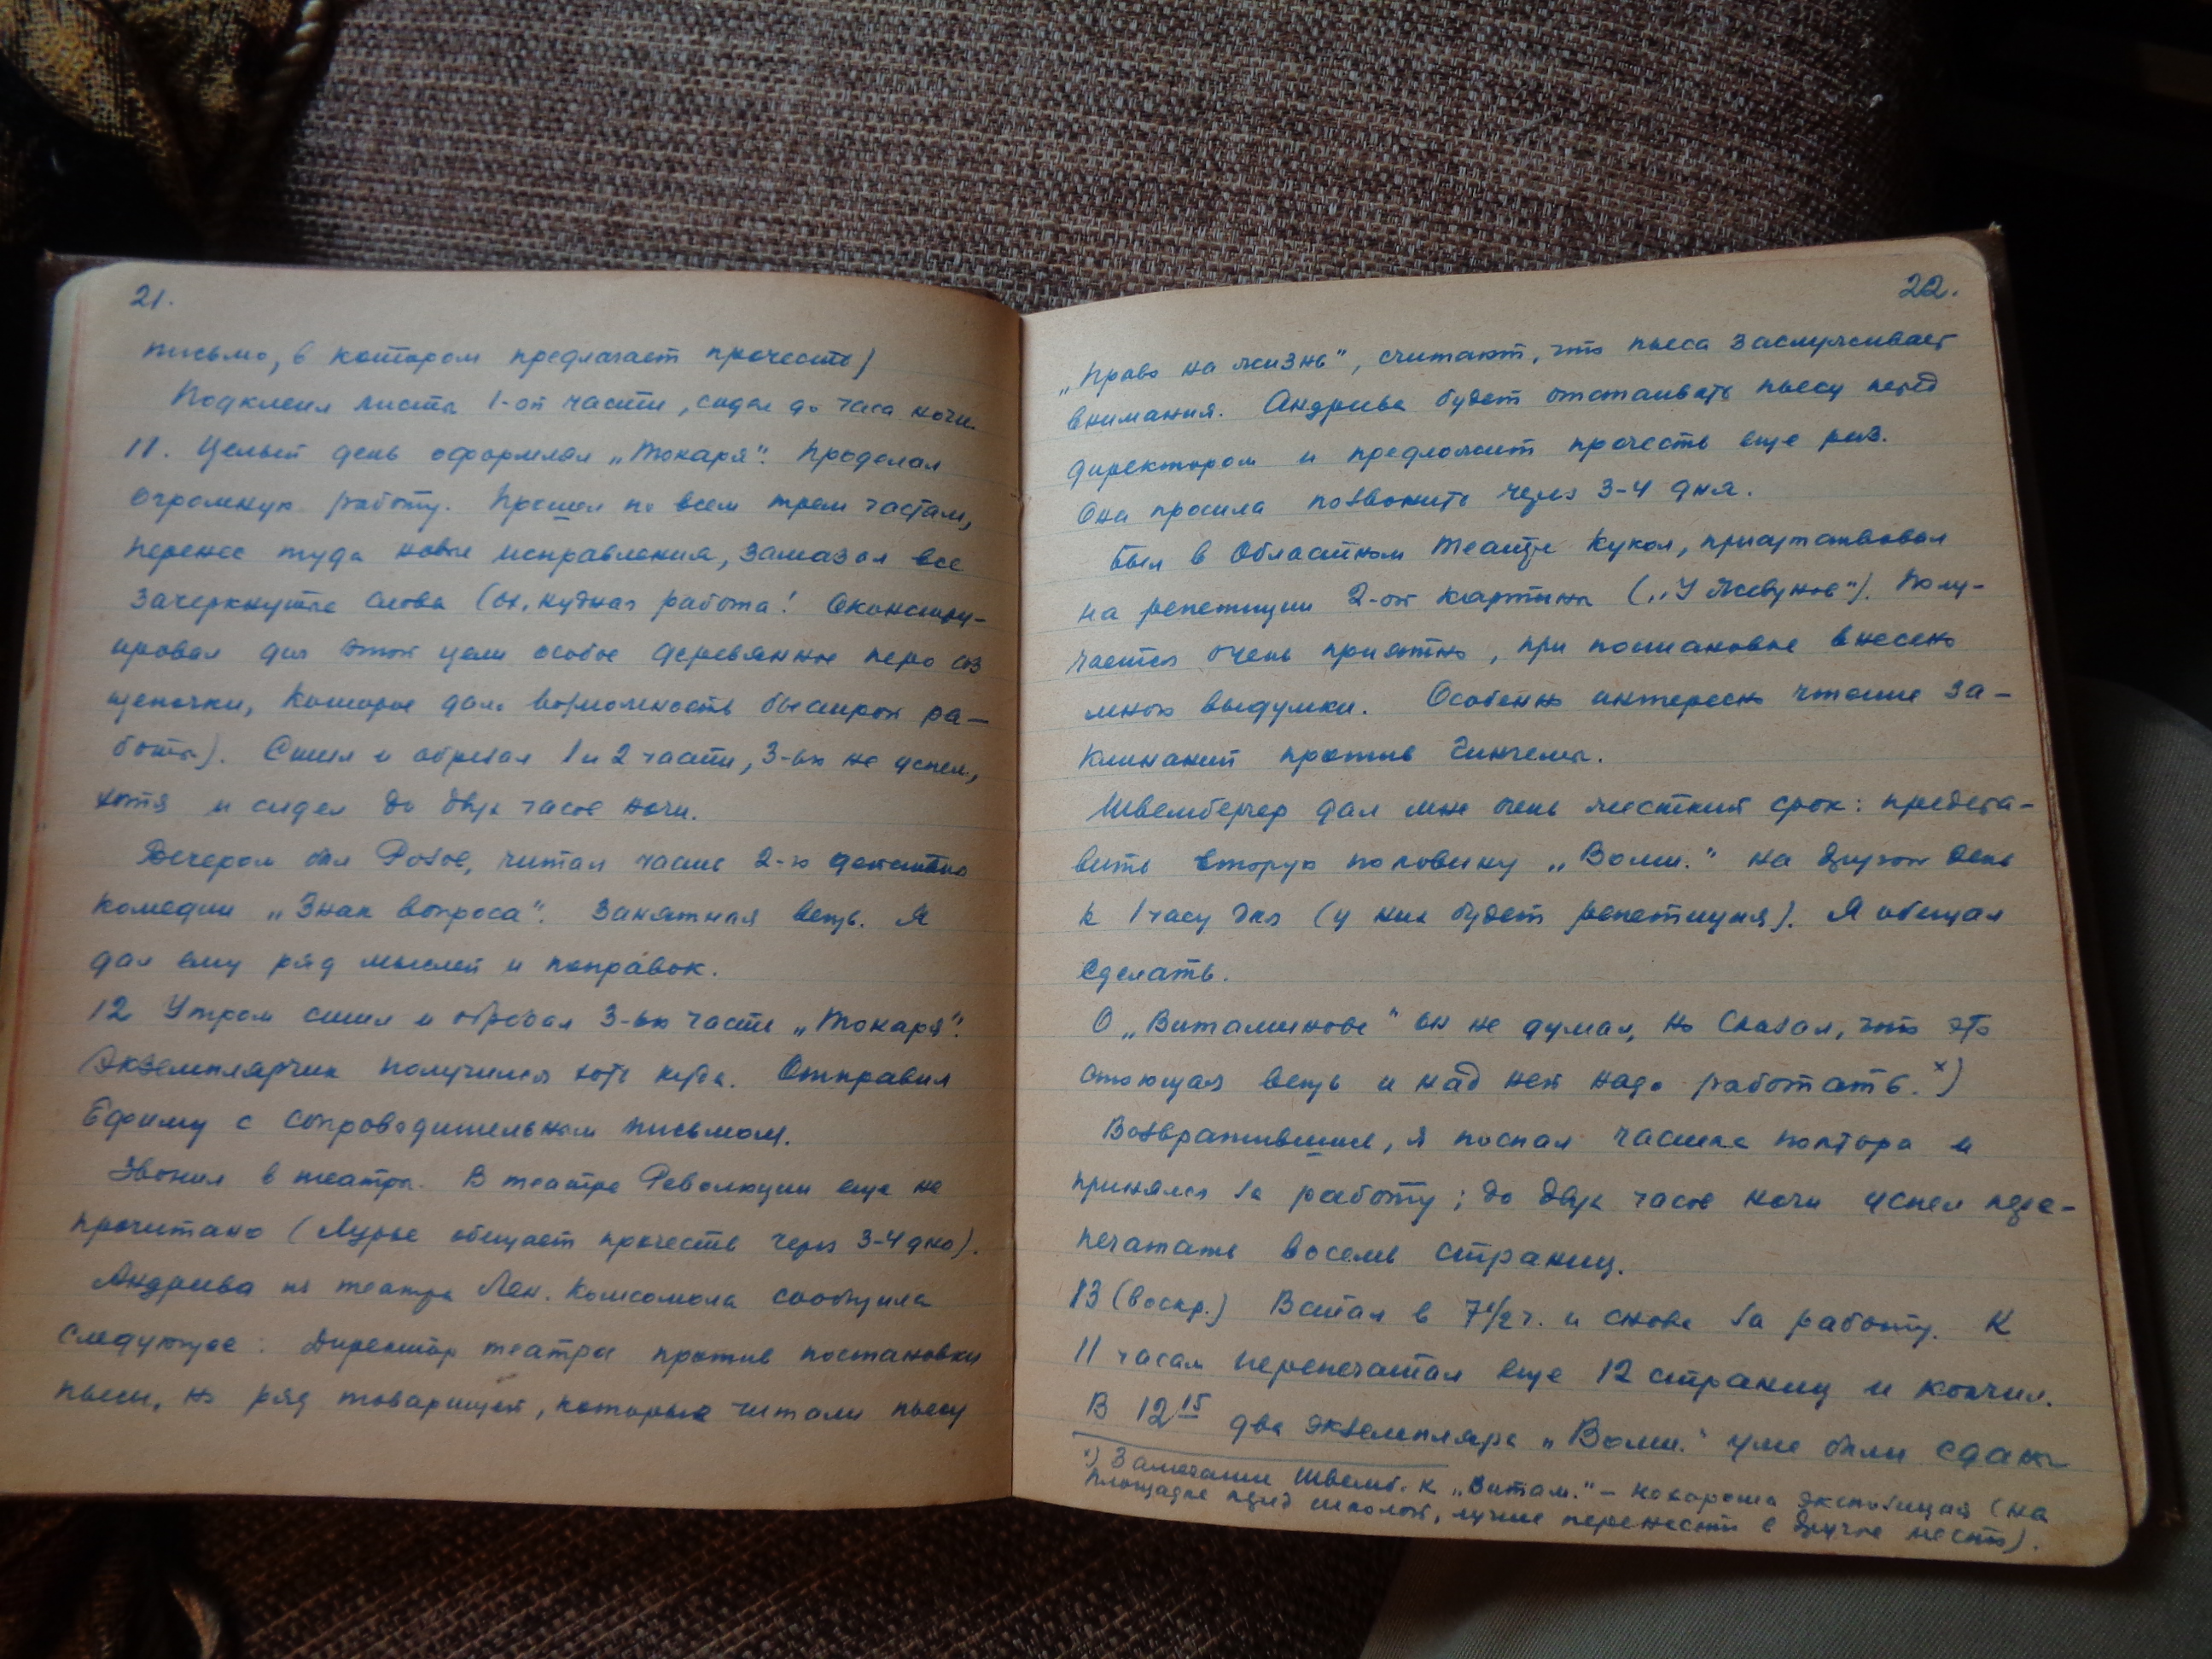 21.
письмо, в котором предлагает прочесть)
Подклеил листы 1-ой части, сидел до часа ночи.
11. Целый день оформлял „Токаря". Проделал
огромную работу. Прошел по всем трем частям,
перенес туда новые исправления, замазал все
зачеркнутые слова (ох, нудная работа! Сконстру-
ировал для этой цели особое деревянное перо из
щепочки, которое дало возможность быстрой ра-
боты). Сшил и обрезал 1 и 2 части, 3-ью не успел,
хотя и сидел до двух часов ночи.
Вечером был Розов, читал часть 2-го действия
комедии „Знак вопроса". Занятная вещь. Я
дал ему ряд мыслей и поправок.
12 Утром сшил и обрезал 3-ью часть „Токаря".
Экземплярчик получился хоть куда. Отправил
Ефиму с сопроводительным письмом.
Звонил в театры. В театре Революции еще не
прочитано (Лурье обещает прочесть через 3-4 дня).
Андреева из театра Лен. Комсомола сообщила
следующее: Директор театра против постановки
пьесы, но ряд товарищей, которые читали пьесу
22.
„Право на жизнь", считают, что пьеса заслуживает
внимания. Андреева будет отстаивать пьесу перед
директором и предложит прочесть еще раз.
Она просила позвонить через 3-4 дня.
Был в Областном театре кукол, присутствовал
на репетиции 2-ой картины („У Жевунов"). Полу-
чается очень приятно, при постановке внесено
много выдумки. Особенно интересно чтение за-
клинаний против Гингемы.
Швембергер дал мне очень жесткий срок: предста-
вить вторую половину „Волш." на другой день
к 1 часу дня (у них будет репетиция). Я обещал
сделать.
О „Витаминове" он не думал, но сказал, что это
стоющая вещь и над ней надо работать. х)
Возвратившись, я поспал часика полтора и
принялся за работу; до двух часов ночи успел пере-
печатать восемь страниц.
13 (воскр.) Встал в 7 1/2 ч. и снова за работу. К
11 часам перепечатал еще 12 страниц и кончил.
В 12 15 два экземпляра „Волш." уже были сданы
х) Замечания Швемб. к „Витам." – нехороша экспозиция (на
площадке перед школой, лучше перенести в другое место).